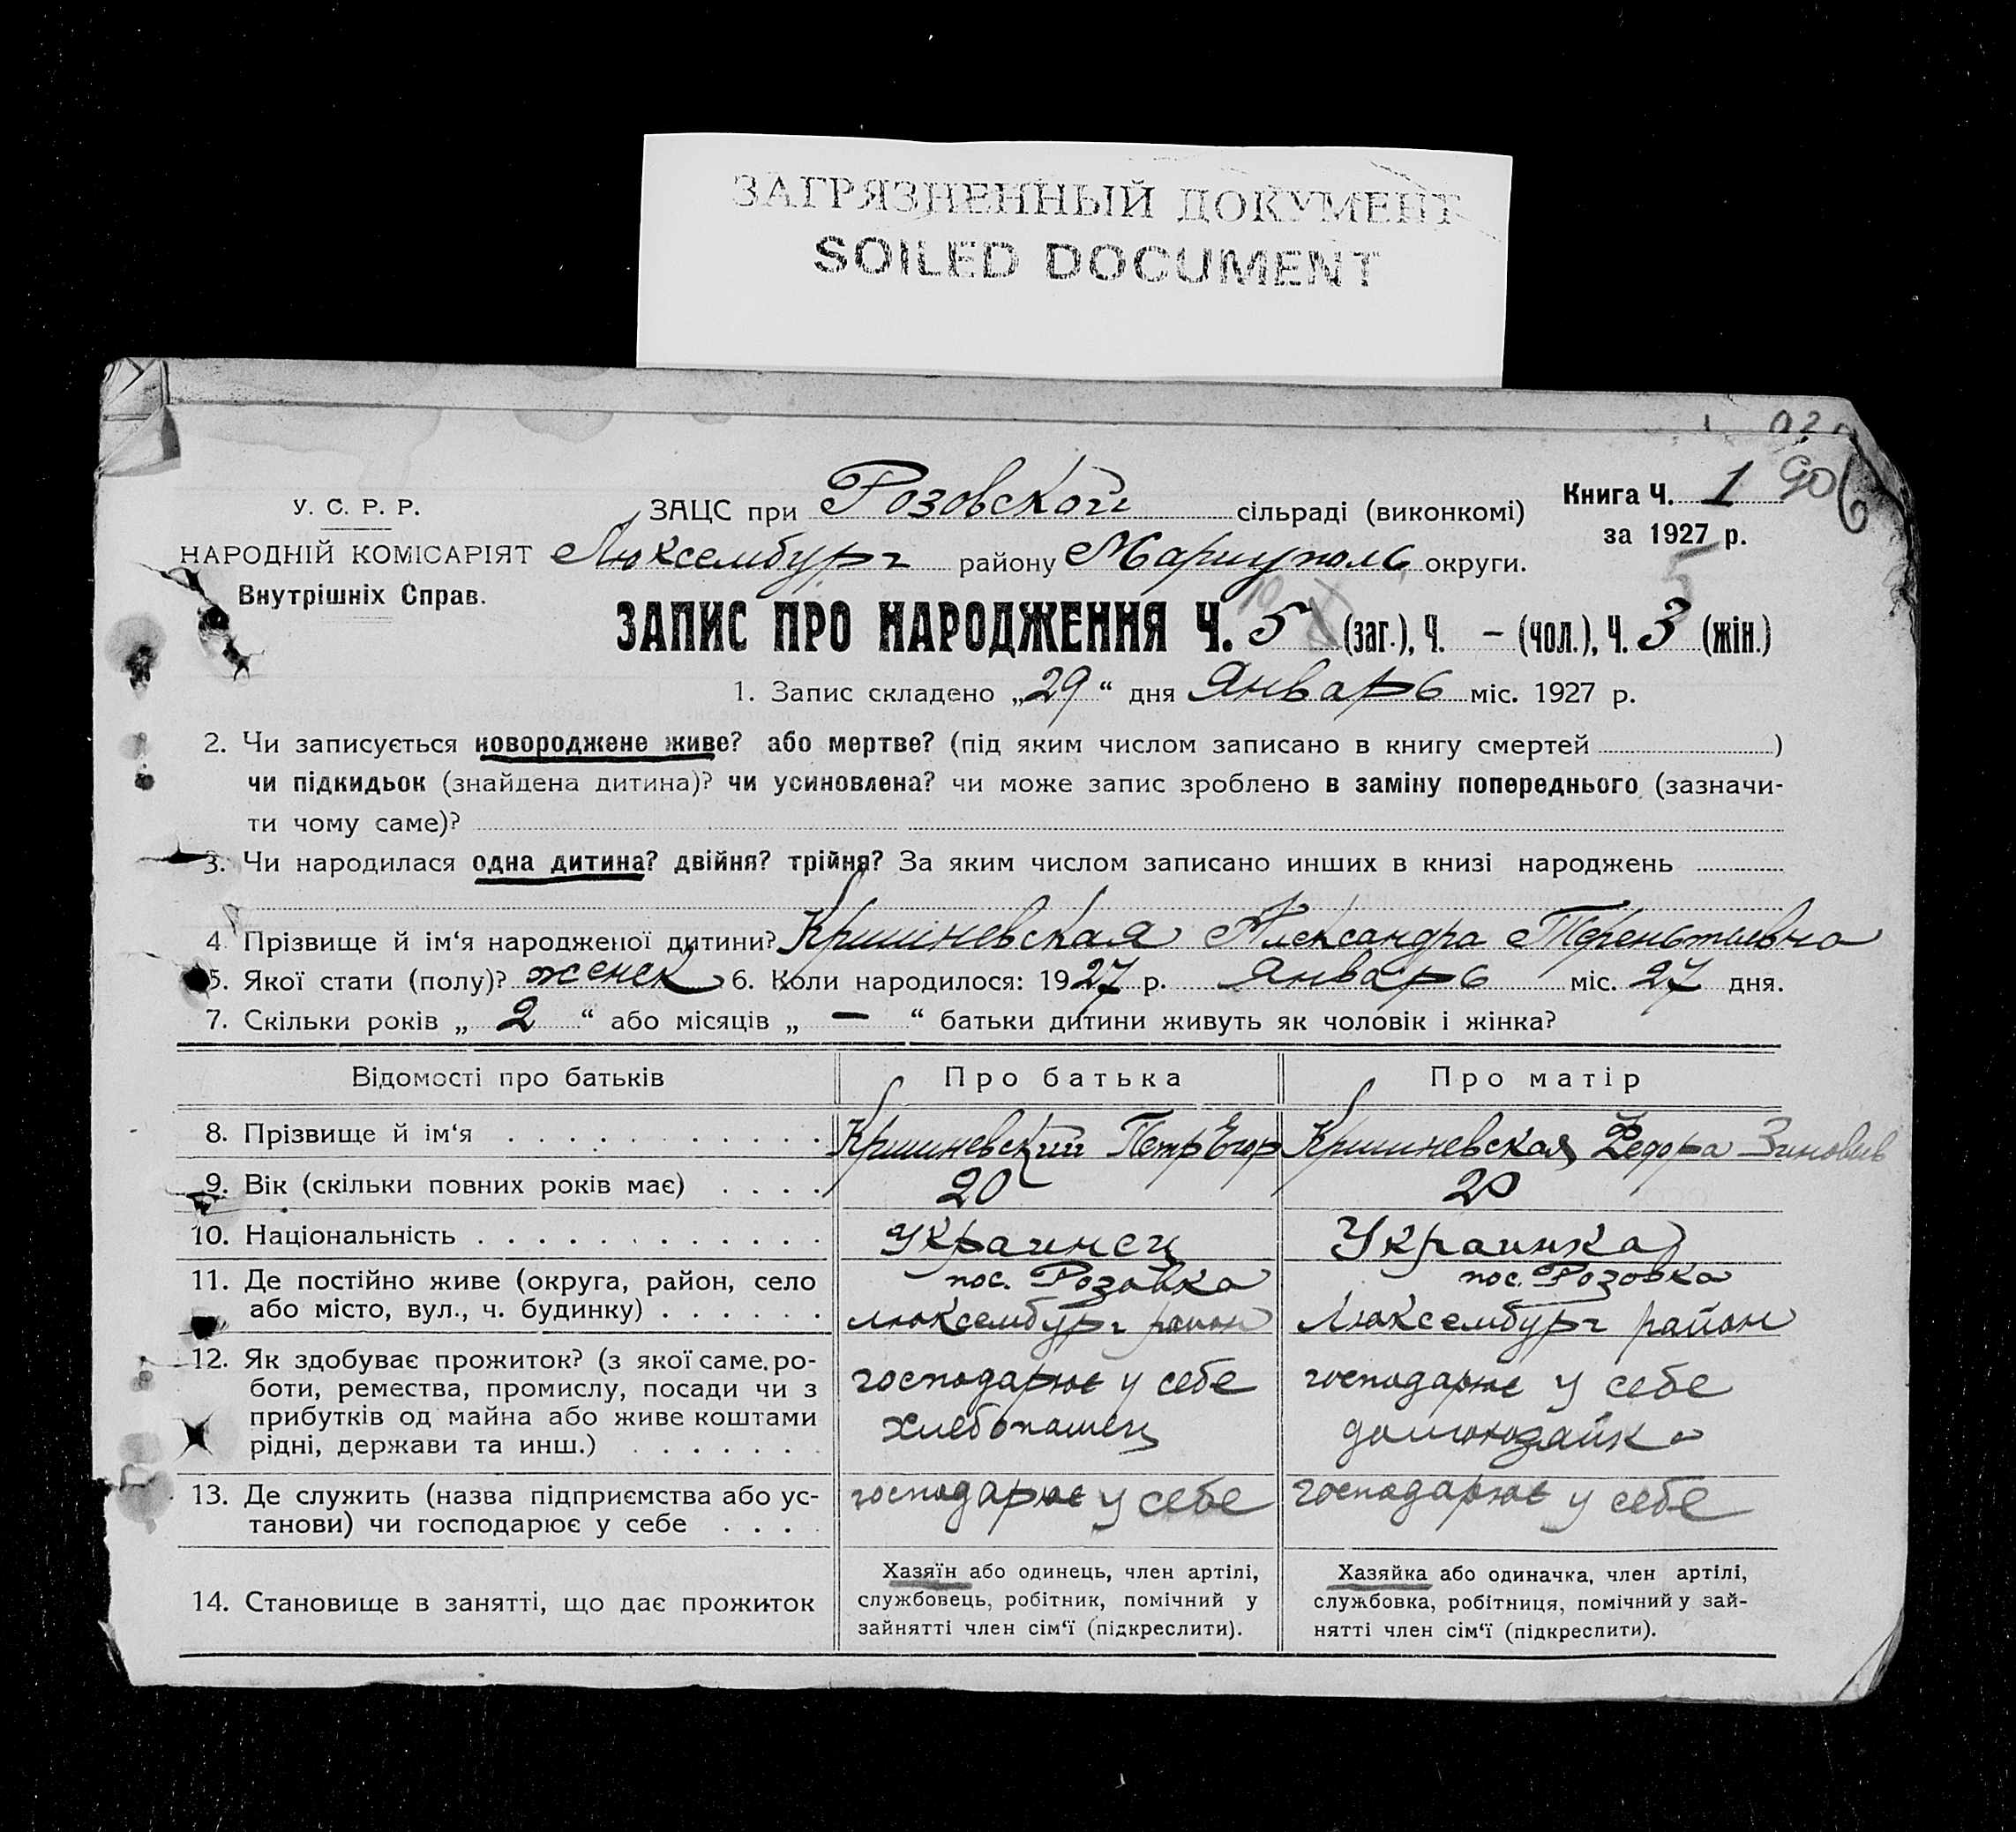 ЗАГРЯЗНЕННЫЙ ДОКУМЕНТ
SOILED DOCUMENT
906
У. С. Р. Р.
ЗАЦС при Розовской сільраді (виконкомі)
Книга Ч. 1
за 1927 р.
НАРОДНІЙ КОМІСАРІЯТ
Внутрішніх Справ.
Люксембург району Мариуполь округи.
ЗАПИС ПРО НАРОДЖЕННЯ Ч. 5 (заг.), Ч. – (чол.), Ч. 3 (жін.)
5
1. Запис складено „29“ дня Январь міс. 1927 р.
2. Чи записується новороджене живе? або мертве? (під яким числом записано в книгу смертей )
чи підкидьок (знайдена дитина)? чи усиновлена? чи може запис зроблено в заміну попереднього (зазначи-
ти чому саме)?
3. Чи народилася одна дитина? двійня? трійня? За яким числом записано инших в книзі народжень
4. Прізвище й ім‘я народженої дитини? Кришневская Александра
5. Якої стати (полу)? женск 6. Коли народилося: 1927 р. Январь міс. 27 дня.
7. Скільки років „ 2 “ або місяців „ — “ батьки дитини живуть як чоловік і жінка?
Відомості про батьків
Про батька
Про матір
8. Прізвище й ім‘я . . . . . . . . . . . .
Кришневский Петр Егор
Кришневская Федора Зиновьев
9. Вік (скільки повних років має) . . . .
20
20
10. Національність . . . . . . . . . . . . .
Украинец
Украинка
11. Де постійно живе (округа, район, село
або місто, вул., ч. будинку) . . . . . .
пос. Розовка
Люксембург район
пос. Розовка
Люксембург район
12. Як здобуває прожиток? (з якої саме ро-
боти, ремества, промислу, посади чи з
прибутків од майна або живе коштами
рідні, держави та инш.) . . . . . . .
господарює у себе
Хлебопашец
господарює у себе
13. Де служить (назва підприємства або ус-
танови) чи господарює у себе . . . .
господарює у себе
господарює у себе
14. Становище в занятті, що дає прожиток
Хазяїн або одинець, член артілі,
службовець, робітник, помічний у
зайнятті член сім‘ї (підкреслити).
Хазяйка або одиначка, член артілі,
службовка, робітниця, помічний у зай-
нятті член сім‘ї (підкреслити).